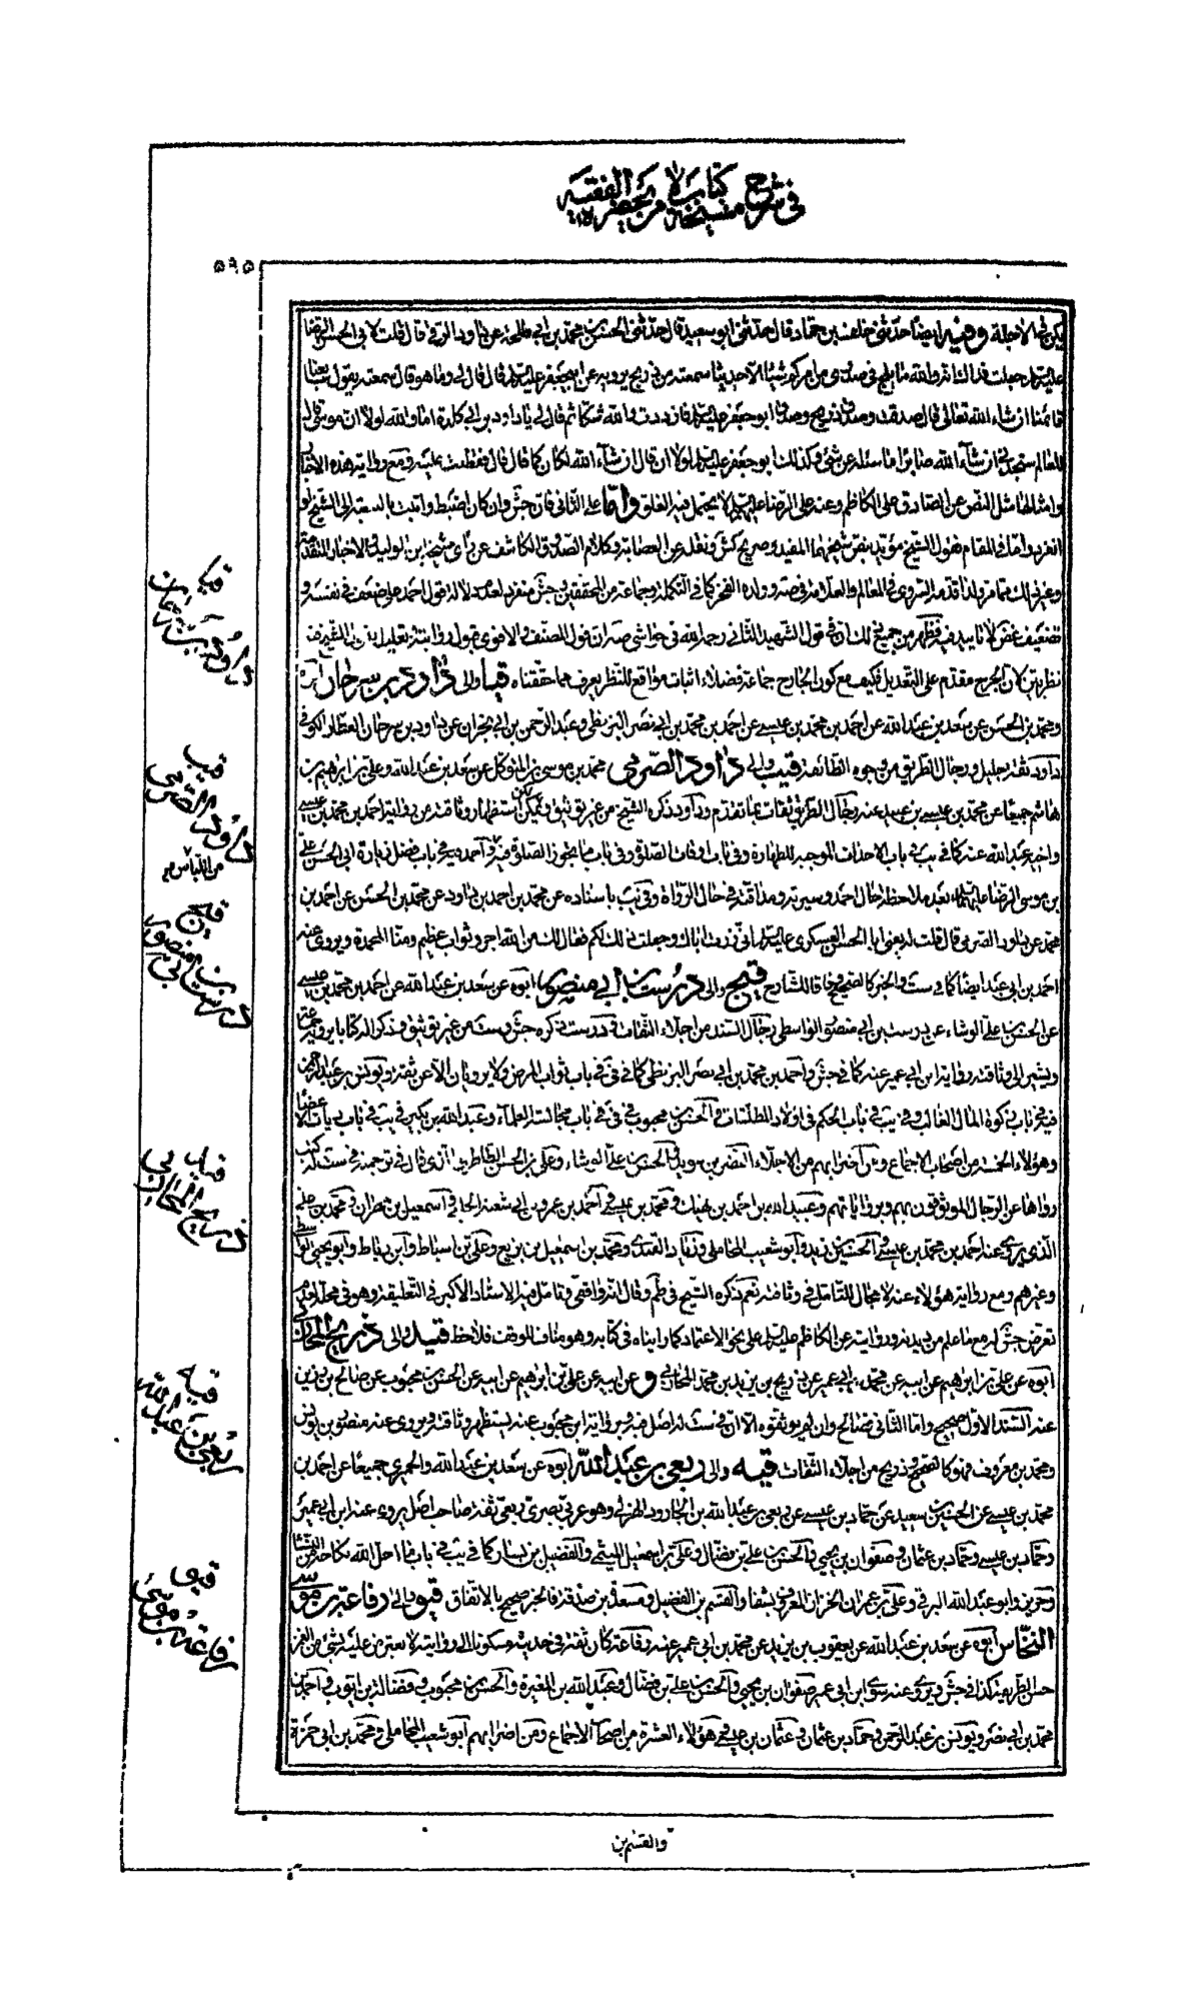 في شرح مشيخة كتاب من لا يحضره الفقيه
٥٩٥
يكن في الاجلة وفيه ايضا حدثني خلف بن حماد قال حدثني ابو سعيد قال حدثني الحسن بن محمد بن ابي طلحة عن داود الرقي قال قلت لابي الحسن الرضا
عليه السلم جعلت فداك انه والله ما يلج في صدري من امرك شيء الا حديثا سمعته من ذريح يرويه عن ابي جعفر عليه السلم قال قال لي وما هو قال سمعته يقول سابعنا
قائمنا ان شاء الله تعالى قال صدقت وصدق ذريح وصدق ابو جعفر عليه السلم فازددت والله شكا ثم قال لي يا داود بن ابي كلدة اما والله لولا ان موسى قال
للعالم ستجدني ان شاء الله صابرا ما سئله عن شيء وكذلك ابو جعفر عليه السلم لولا ان قال ان شاء الله لكان كما قال قال فقطعت عليه ومع رواية هذه الاخبار
وامثالها مثل النص عن الصادق على الكاظم وعنه على الرضا عليهم السلم لا يحتمل فيه الغلو واما على الثاني فان جش وان كان اضبط واثبت بالنسبة الى الشيخ لو
انفرد واما في المقام فقول الشيخ مؤيد بنص شيخهما المفيد وصريح كش ونقله عن العصابة وكلام الصدوق الكاشف عن رأي مشيخة ابن الوليد والاخبار المتقدمة
وغير ذلك مما مر ولذا قدمه السروي في المعالم والعلامة في صه وولده الفخر كما في التكملة وجماعة من المحققين وجش متفرد لعدم دلالة قول احمد على ضعف في نفسه و
تضعيف غض لا تاييد فيه فظهر من جميع ذلك ان في قول الشهيد الثاني رحمه الله في حواشي صه ان قول المصنف والاقوى قبول روايته بتعليل
نظر بين لان الجرح مقدم على التعديل فكيف مع كون الجارح جماعة فضلاء اثبات مواقع للنظر يعرف مما حققناه قيا والى داود بن سرحان ابوه
ومحمد بن الحسن عن سعد بن عبد الله عن احمد بن محمد بن عيسى عن احمد بن محمد بن ابي نصر البزنطي وعبد الرحمن بن ابي نجران عن داود بن سرحان العطار الكوفي
داود ثقة جليل ورجال الطريق من وجوه الطائفة قيب والى داود الصرمي محمد بن موسى بن المتوكل عن سعد بن عبد الله وعلي بن ابراهيم بن
هاشم جميعا عن محمد بن عيسى بن عبيد عنه رجال الطريق ثقات بما تقدم وداود ذكره الشيخ من غير توثيق ويمكن استظهار وثاقته من رواية احمد بن محمد بن عيسى
واخيه عبد الله عنه كما في يب في باب الاحداث الموجبة للطهارة وفي باب اوقات الصلوة وفي باب ما يجوز الصلوة فيه واحمد في باب فضل زيارة ابي الحسن علي
بن موسى الرضا عليهما السلم بعد ملاحظة حال احمد وسيرته ومداقته في حال الرواة وفي يب باسناده عن محمد بن احمد بن داود عن محمد بن الحسن عن احمد بن
محمد عن داود الصرمي قال قلت له يعني ابا الحسن العسكري عليه السلم اني زرت اباك وجعلت ذلك لكم فقال لك من الله اجر وثواب عظيم ومنا المحمدة ويروي عنه
احمد بن ابي عبد الله ايضا كما في ست والخبر كالصحيح وفاقا للشارح قيج والى درست بن ابي منصور ابوه عن سعد بن عبد الله عن احمد بن محمد بن عيسى
عن الحسن بن علي الوشاء عن درست بن ابي منصور الواسطي رجال السند من اجلاء الثقات ودرست ذكره جش وست من غير توثيق وذكرا له كتابا يرويه جماعة
ويشير الى وثاقته رواية ابن ابي عمير عنه كما في جش واحمد بن محمد بن ابي نصر البزنطي كما في في في باب ثواب المرض ولا يرويان الا عن ثقة ويونس بن عبد الرحمن
فيه في باب زكوة المال الغائب وفي يب في باب الحكم في اولاد المطلقات والحسن بن محبوب في في في باب مجالسة العلماء وعبد الله بن بكير في يب في باب ديات الاعضاء
وهؤلاء الخمسة من اصحاب الاجماع ومن اضرابهم من الاجلاء النضر بن سويد والحسن بن علي الوشاء وعلي بن الحسن الطاطري الذي قال في ترجمته في ست له كتب
رواها عن الرجال الموثوقون بهم وبرواياتهم وعبيد الله بن احمد بن نهيك ومحمد بن عيسى واحمد بن عمر بن ابي شعبة الحلبي واسمعيل بن مهران ومحمد بن علي
الذي يروي عنه احمد بن محمد بن عيسى والحسين بن زيد وابو شعيب المحاملي وزياد القندي ومحمد بن اسمعيل بن بزيع وعلي بن اسباط وابن رباط وابو يحيى الواسطي
وغيرهم ومع رواية هؤلاء عنه لا مجال للتامل في وثاقته نعم ذكره الشيخ في ظم وقال انه واقفي وتامل فيه الاستاد الاكبر في التعليقة وهو في محله لعدم
تعرض جش له مع ما علم من ديدنه وروايته عن الكاظم عليه السلم على نحو الاعتماد كما رايناه في كتابه وهو مناف للوقف فلاحظ قيد والى ذريح المحاربي
ابوه عن علي بن ابراهيم عن ابيه عن محمد بن ابي عمير عن ذريح بن يزيد بن محمد المحاربي و عن ابيه عن علي بن ابراهيم عن ابيه عن الحسن بن محبوب عن صالح بن رزين
عنه السند الاول صحيح واما الثاني فصالح وان لم يوثقوه الا ان في ست له اصل فيه رواية ابن محبوب عنه يستظهر وثاقته ويروي عنه منصور بن يونس
ومحمد بن معروف فهو كالصحيح وذريح من اجلاء الثقات قيه والى ربعي بن عبد الله ابوه عن سعد بن عبد الله والحميري جميعا عن احمد بن
محمد بن عيسى عن الحسين بن سعيد عن حماد بن عيسى عن ربعي بن عبد الله بن الجارود الهذلي وهو عربي بصري ربعي ثقة صاحب اصل يروي عنه ابن ابي عمير
وحماد بن عيسى وحماد بن عثمان وصفوان بن يحيى والحسن بن علي بن فضال وعلي بن اسمعيل الميثمي والفضيل بن يسار كما في يب في باب ما احل الله نكاحه من النساء
وحريز وابو عبد الله البرقي وعلي بن عمران الخزاز المعروف بشفا والقسم بن الفضيل ومسعدة بن صدقة فالخبر صحيح بالاتفاق قيو والى رفاعة بن موسى
النخاس ابوه عن سعد بن عبد الله عن يعقوب بن يزيد عن محمد بن ابي عمير عنه ورفاعة كان ثقة في حديثه مسكونا الى روايته لا يعترض عليه بشيء من الغمز
حسن الطريقة كذا في جش ويروي عنه سوى ابن ابي عمير صفوان بن يحيى والحسن بن علي بن فضال وعبد الله بن المغيرة والحسن بن محبوب وفضالة بن ايوب واحمد بن
محمد بن ابي نصر ويونس بن عبد الرحمن وحماد بن عثمان وعثمان بن عيسى وهؤلاء العشرة من اصحاب الاجماع ومن اضرابهم ابو شعيب المحاملي ومحمد بن ابي حمزة
والقسم بن
قيا
داود بن سرحان
قيب
داود الصرمي
قيج
درست بن ابي منصور
قيد
ذريح المحاربي
قيه
ربعي بن عبد الله
قيو
رفاعة بن موسى